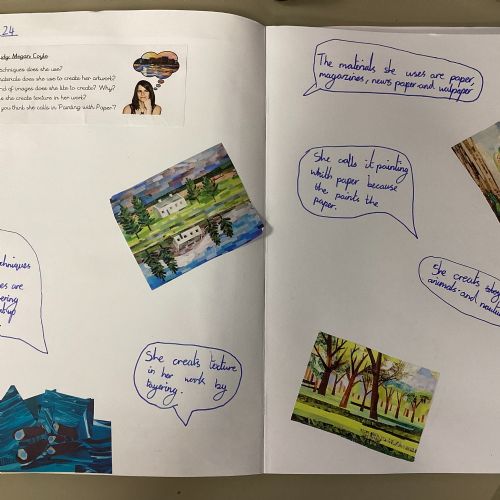 24
udy: Megan Coyle
chniques does she use?
aterials does she use to create her artwork?
nd of images does she like to create? Why?
e she create texture in her work?
you think she calls it 'Painting with Paper'?
The materials she uses are paper,
magazines, news paper and walpaper
She calls it painting
whith paper because
the paints the
paper.
chniques
es are
ering
She creats
animals and
She creats texture
in her work by
layering.